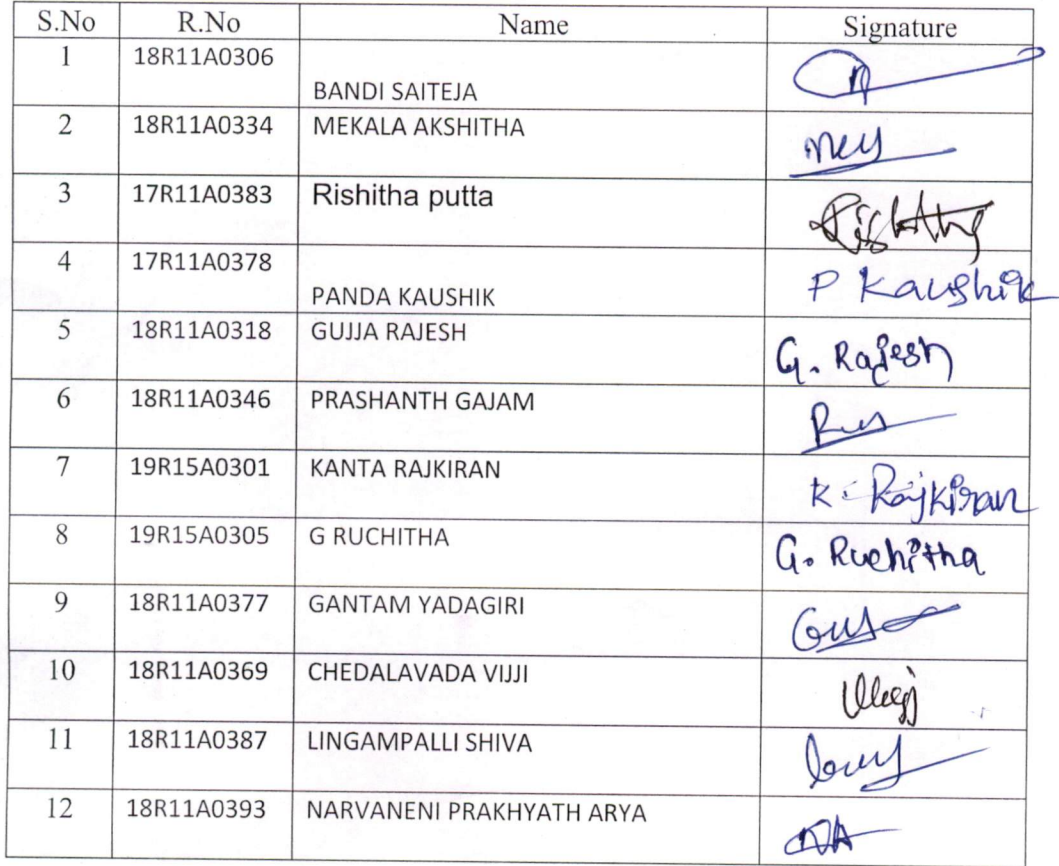 S.No R.No Name Signature
1 18R11A0306
BANDI SAITEJA
2 18R11A0334 MEKALA AKSHITHA
3 17R11A0383 Rishitha putta
Rishitha
4 17R11A0378
PANDA KAUSHIK P Kaushik
5 18R11A0318 GUJJA RAJESH
G. Rajesh
6 18R11A0346 PRASHANTH GAJAM
7 19R15A0301 KANTA RAJKIRAN
K. Rajkiran
8 19R15A0305 G RUCHITHA
G. Ruchitha
9 18R11A0377 GANTAM YADAGIRI
10 18R11A0369 CHEDALAVADA VIJJI
11 18R11A0387 LINGAMPALLI SHIVA
12 18R11A0393 NARVANENI PRAKHYATH ARYA
NA